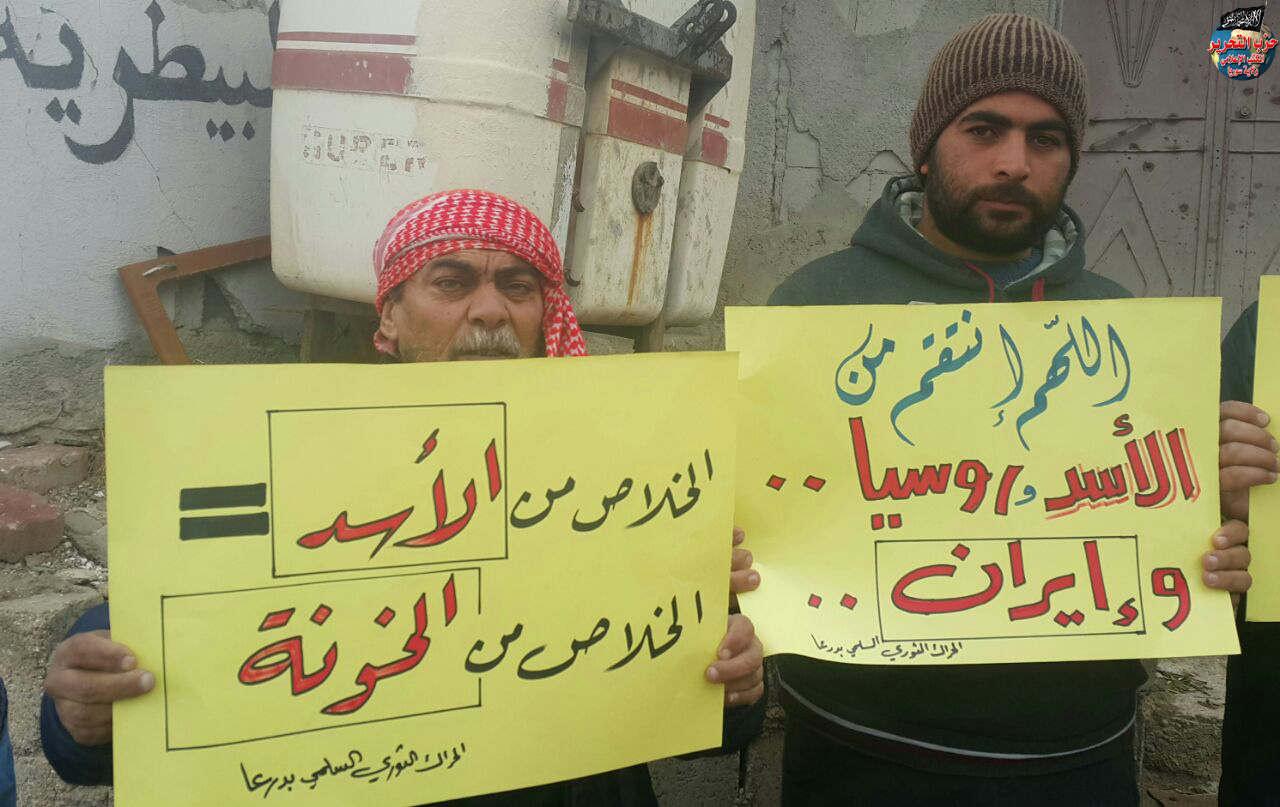 حزب التحرير
المكتب الإعلامي
ولاية سوريا
البيطرية
SUPER
اللهم إنتقم من
الأسد وروسيا ..
وإيران ..
الحراك الثوري السلمي بدرعا
الخلاص من الأسد =
الخلاص من الخونة
الحراك الثوري السلمي بدرعا